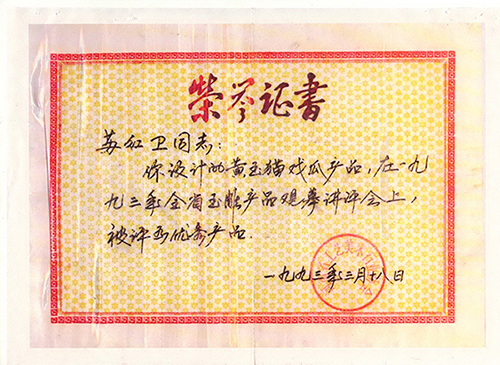 荣誉证书
苏红卫同志:
你设计的黄玉猫戏瓜产品,在一九
九三年全省玉雕产品观摩讲评会上,
被评为优秀产品.
一九九三年三月十八日